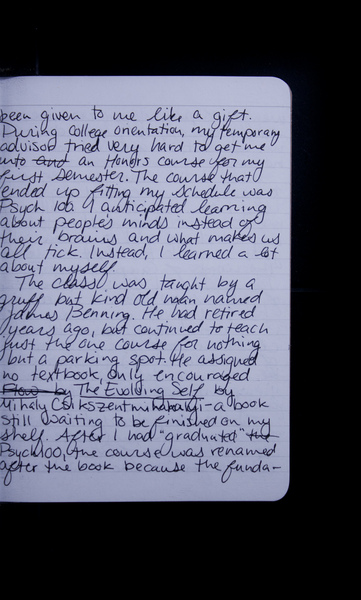 been given to me like a gift.
During college orientation, my temporary
advisor tried very hard to get me
into and an Honors course for my
first semester. The course that
ended up fitting my schedule was
Psych 100. I anticipated learning
about people's minds instead of
their brains and what makes us
all tick. Instead, I learned a lot
about myself.
The class was taught by a
gruff but kind old man named
James Benning. He had retired
years ago, but continued to teach
just the one course for nothing
but a parking spot. He assigned
no textbook, only encouraged
Flow by The Evolving Self by
Mihaly Csikszentmihahalyi - a book
still waiting to be finished on my
shelf. After I had "graduated" the
Psych 100, the course was renamed
after the book because the funda-